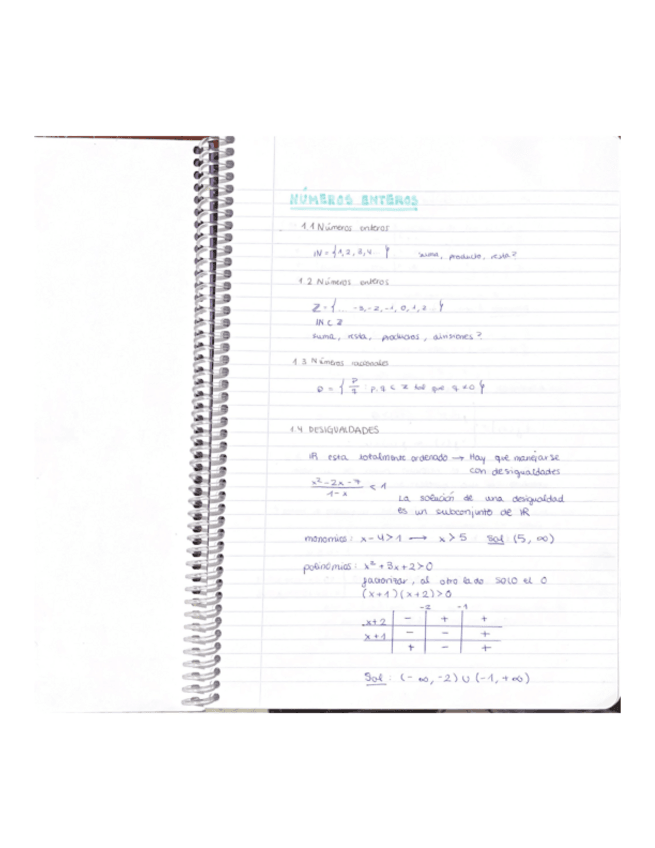 NÚMEROS ENTEROS
1.1 Números enteros
IN = {1, 2, 3, 4... } suma, producto, resta?
1.2 Números enteros
Z = { ... -3, -2, -1, 0, 1, 2 ... }
IN ⊂ Z
suma, resta, productos, divisiones?
1.3 Números racionales
Q = { p/q : p, q ∈ Z tal que q ≠ 0 }
1.4 DESIGUALDADES
IR esta totalmente ordenado → Hay que manejarse
con desigualdades
x² - 2x - 7 / 1 - x < 1
La solución de una desigualdad
es un subconjunto de IR
monomios : x - 4 > 1 → x > 5 Sol : (5, ∞)
polinomios : x² + 3x + 2 > 0
factorizar, al otro lado SOLO el 0
(x + 1) (x + 2) > 0
-2 -1
x + 2 - + +
x + 1 - - +
+ - +
Sol : (- ∞, -2) ∪ (-1, + ∞)